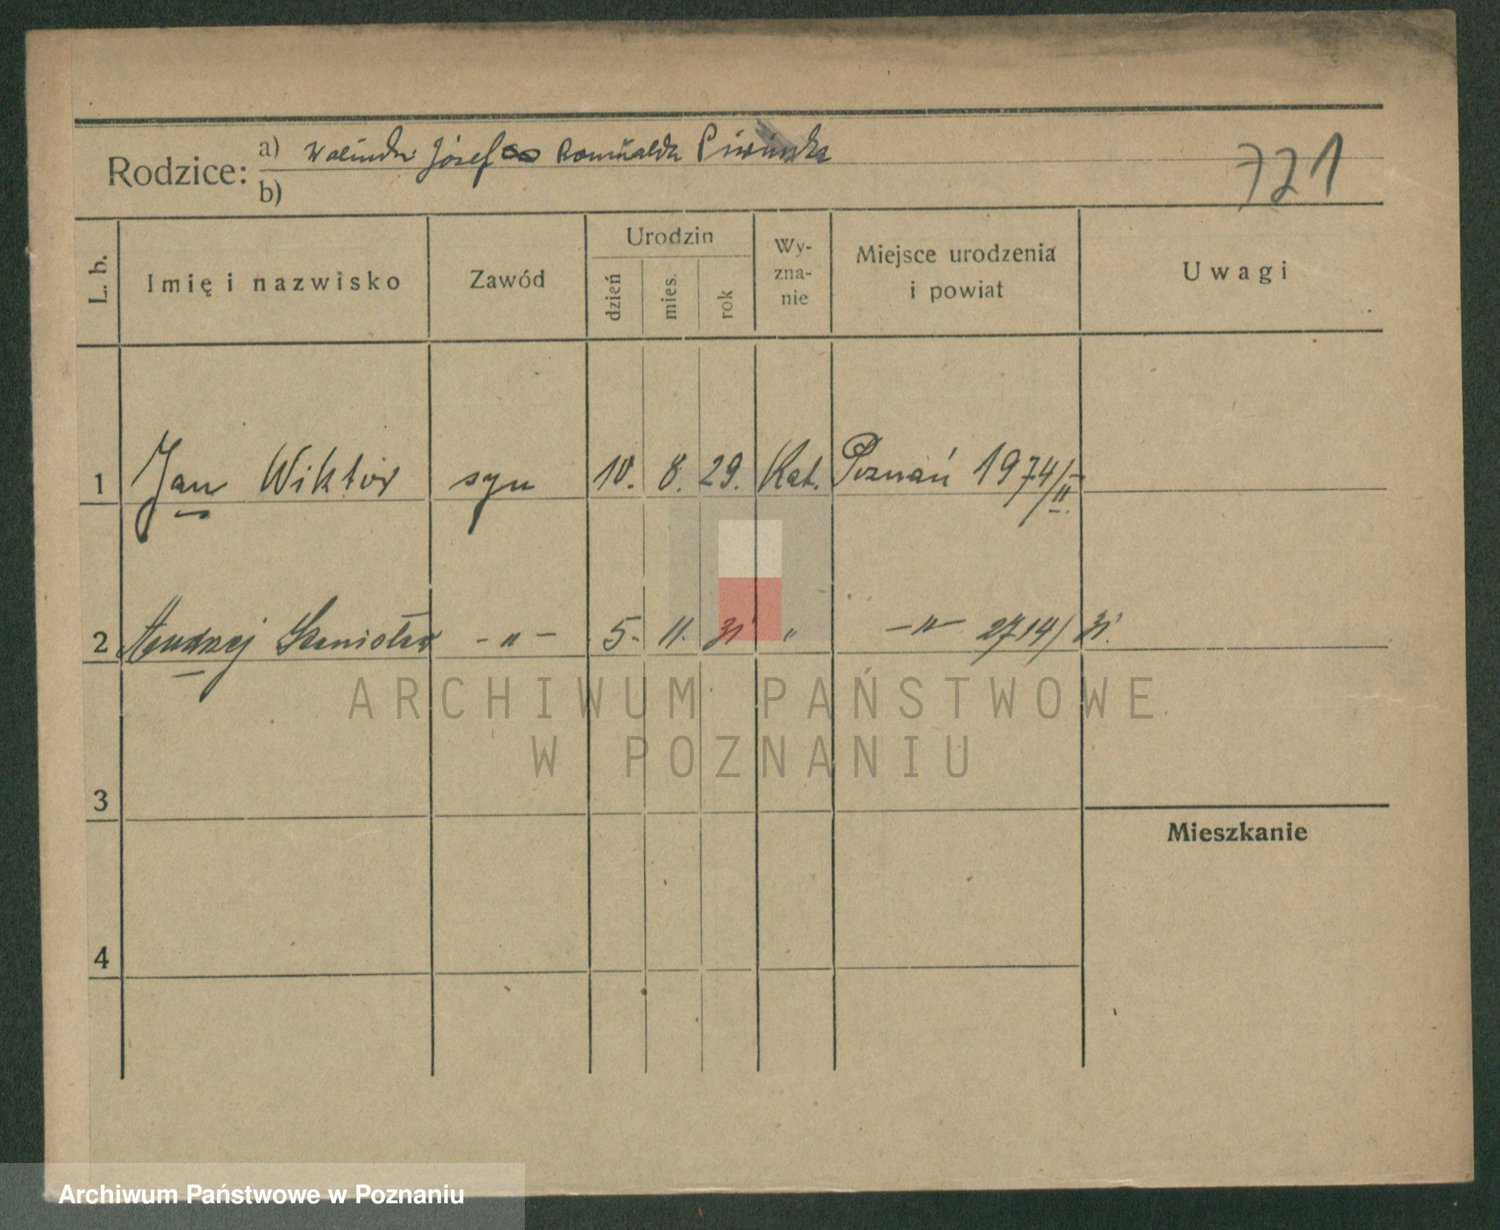 Rodzice: a) Józef Romualda
b)
721
L. b. Imię i nazwisko Zawód Urodzin dzień mies. rok Wy-zna-nie Miejsce urodzenia i powiat Uwagi
1 Jan Wiktor syn 10. 8. 29. Kat. Poznań 1974/II.
2 Andrzej Stanisław -"- 5. 11. 31 " -"- 2714/31.
ARCHIWUM PAŃSTWOWE
W POZNANIU
3
Mieszkanie
4
Archiwum Państwowe w Poznaniu